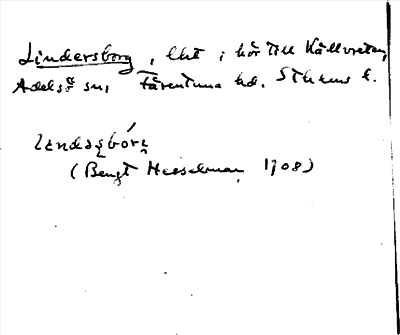 Lindersborg, lht; hör till Källvreten,
Adelsö sn, Färentuna hd. Sthlms l.
(Bengt Hesselman 1908)